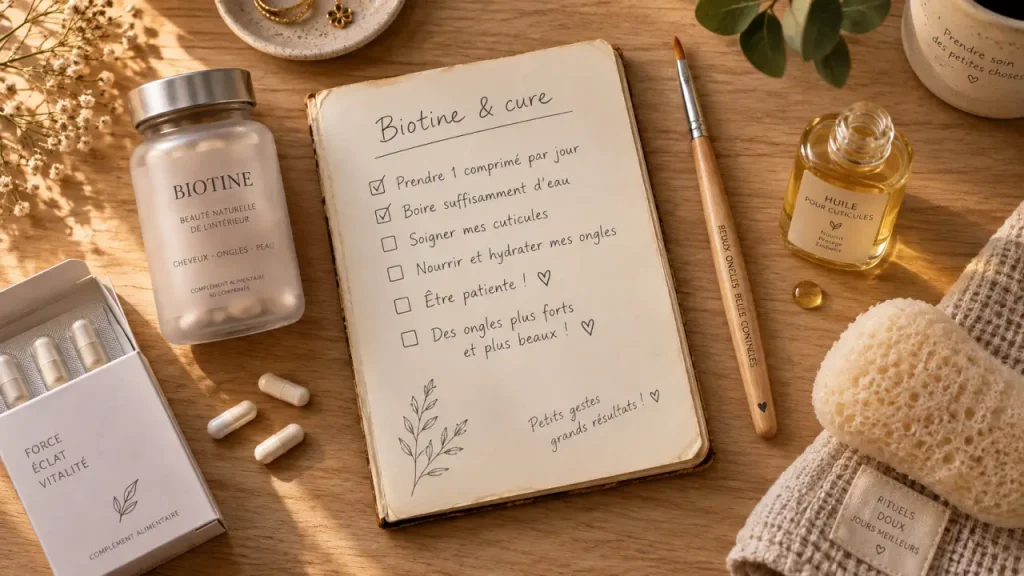 Biotine & cure
Prendre 1 comprimé par jour
Boire suffisamment d'eau
Soigner mes cuticules
Nourrir et hydrater mes ongles
Être patiente ! ♡
Des ongles plus forts
et plus beaux ! ♡
Petits gestes
grands résultats ! ♡
BIOTINE
BEAUTÉ NATURELLE
DE L'INTÉRIEUR
CHEVEUX - ONGLES - PEAU
COMPLÉMENT ALIMENTAIRE
COMPRIMÉS
FORCE
ÉCLAT
VITALITÉ
COMPLÉMENT ALIMENTAIRE
BELLES
HUILE
POUR CUTICULES
Nourrit
Prendre soin
des petites choses
♡
RITUELS
DOUX
JOURS MEILLEURS
♡